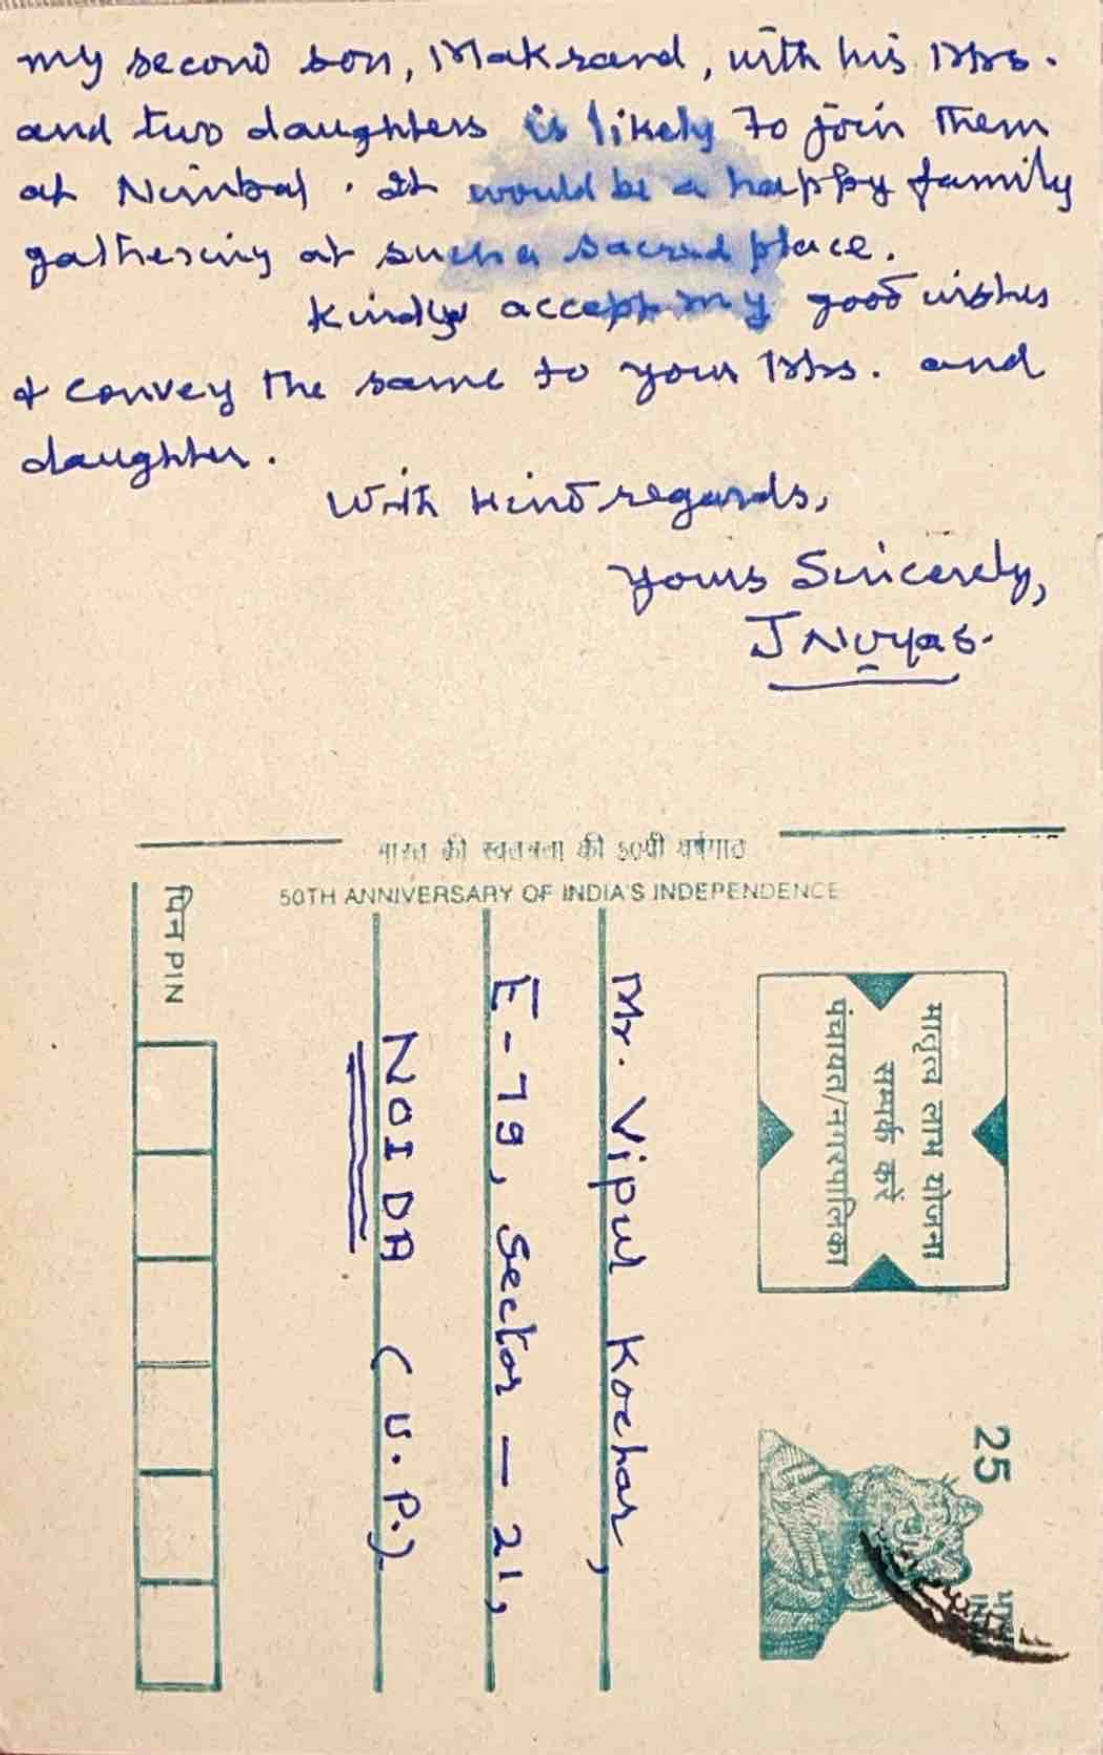 my second son, Maksand, with his Mrs.
and two daughters is likely to join them
at Nimbal. It would be a happy family
gathering at such a sacred place.
Kindly accept my good wishes
& convey the same to your Mrs. and
daughter.
With kind regards,
Yours Sincerely,
J N Vyas.
भारत की स्वतंत्रता की 50वीं वर्षगांठ
50TH ANNIVERSARY OF INDIA'S INDEPENDENCE
मातृत्व लाभ योजना
सम्पर्क करें
पंचायत/नगरपालिका
25
Mr. Vipul Kochar,
E-79, Sector - 21,
NOIDA (U.P.)
पिन PIN